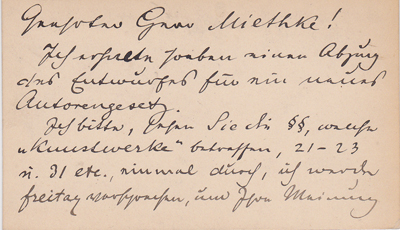 Geehrter Herr Miethke!
Ich erhielte soeben einen Abzug
des Entwurfes für ein neues
Autorengesetz.
Ich bitte, sehen Sie die §§, welche
„Kunstwerke" betreffen, 21-23
u. 31 etc., einmal durch, ich werde
freitag vorsprechen, um Ihre Meinung